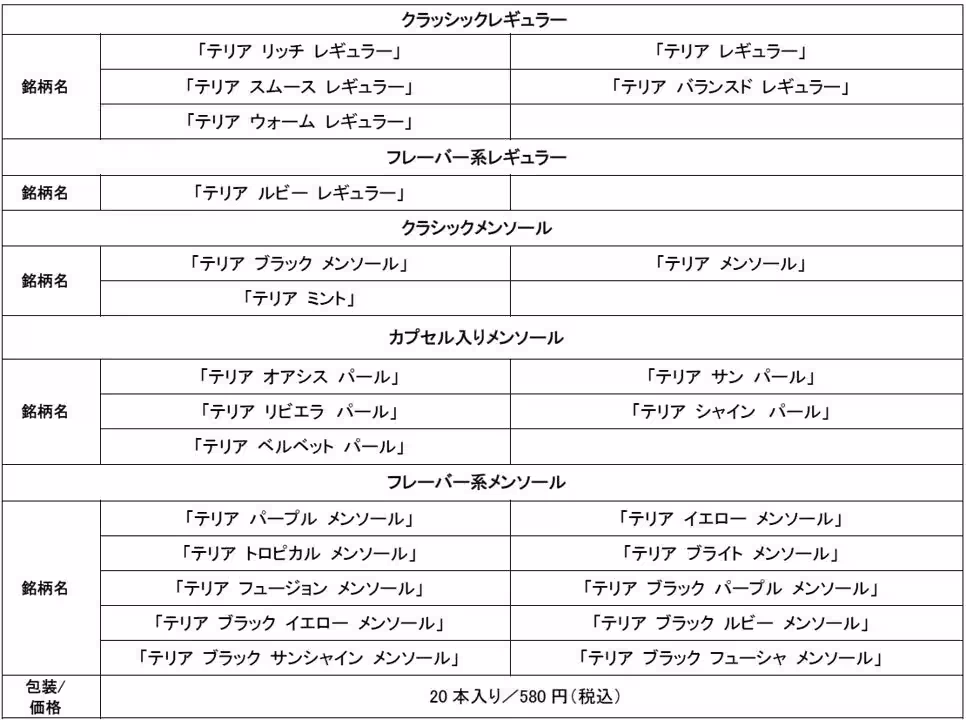 クラッシックレギュラー
銘柄名
「テリア リッチ レギュラー」 「テリア レギュラー」
「テリア スムース レギュラー」 「テリア バランスド レギュラー」
「テリア ウォーム レギュラー」
フレーバー系レギュラー
銘柄名 「テリア ルビー レギュラー」
クラシックメンソール
銘柄名
「テリア ブラック メンソール」 「テリア メンソール」
「テリア ミント」
カプセル入りメンソール
銘柄名
「テリア オアシス パール」 「テリア サン パール」
「テリア リビエラ パール」 「テリア シャイン パール」
「テリア ベルベット パール」
フレーバー系メンソール
銘柄名
「テリア パープル メンソール」 「テリア イエロー メンソール」
「テリア トロピカル メンソール」 「テリア ブライト メンソール」
「テリア フュージョン メンソール」 「テリア ブラック パープル メンソール」
「テリア ブラック イエロー メンソール」 「テリア ブラック ルビー メンソール」
「テリア ブラック サンシャイン メンソール」 「テリア ブラック フューシャ メンソール」
包装/
価格
20本入り／580円（税込）